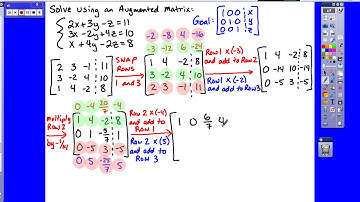 Solve using an Augmented Matrix:
2x+3y-z=11
3x-2y+4z=10
x+4y-2z=8
Goal:
1 0 0 x
0 1 0 y
0 0 1 z
-2 -8 4 -16
-3 -12 6 -24
2 3 -1 11
3 -2 4 10
1 4 -2 8
SWAP
ROWS
1 and 3
1 4 -2 8
3 -2 4 10
2 3 -1 11
Row 1 x(-3)
and add to Row 2
Row 1 x (-2)
and add to Row 3
1 4 -2 8
0 -14 10 -14
0 -5 3 -5
multiply
Row 2
by -1/14
0 -4 20/7 -4
1 4 -2 8
0 1 -5/7 1
0 -5 3 -5
0 5 -25/7 5
Row 2 x(-4)
and add to
Row 1
Row 2 x(5)
and add to
Row 3
1 0 6/7 4